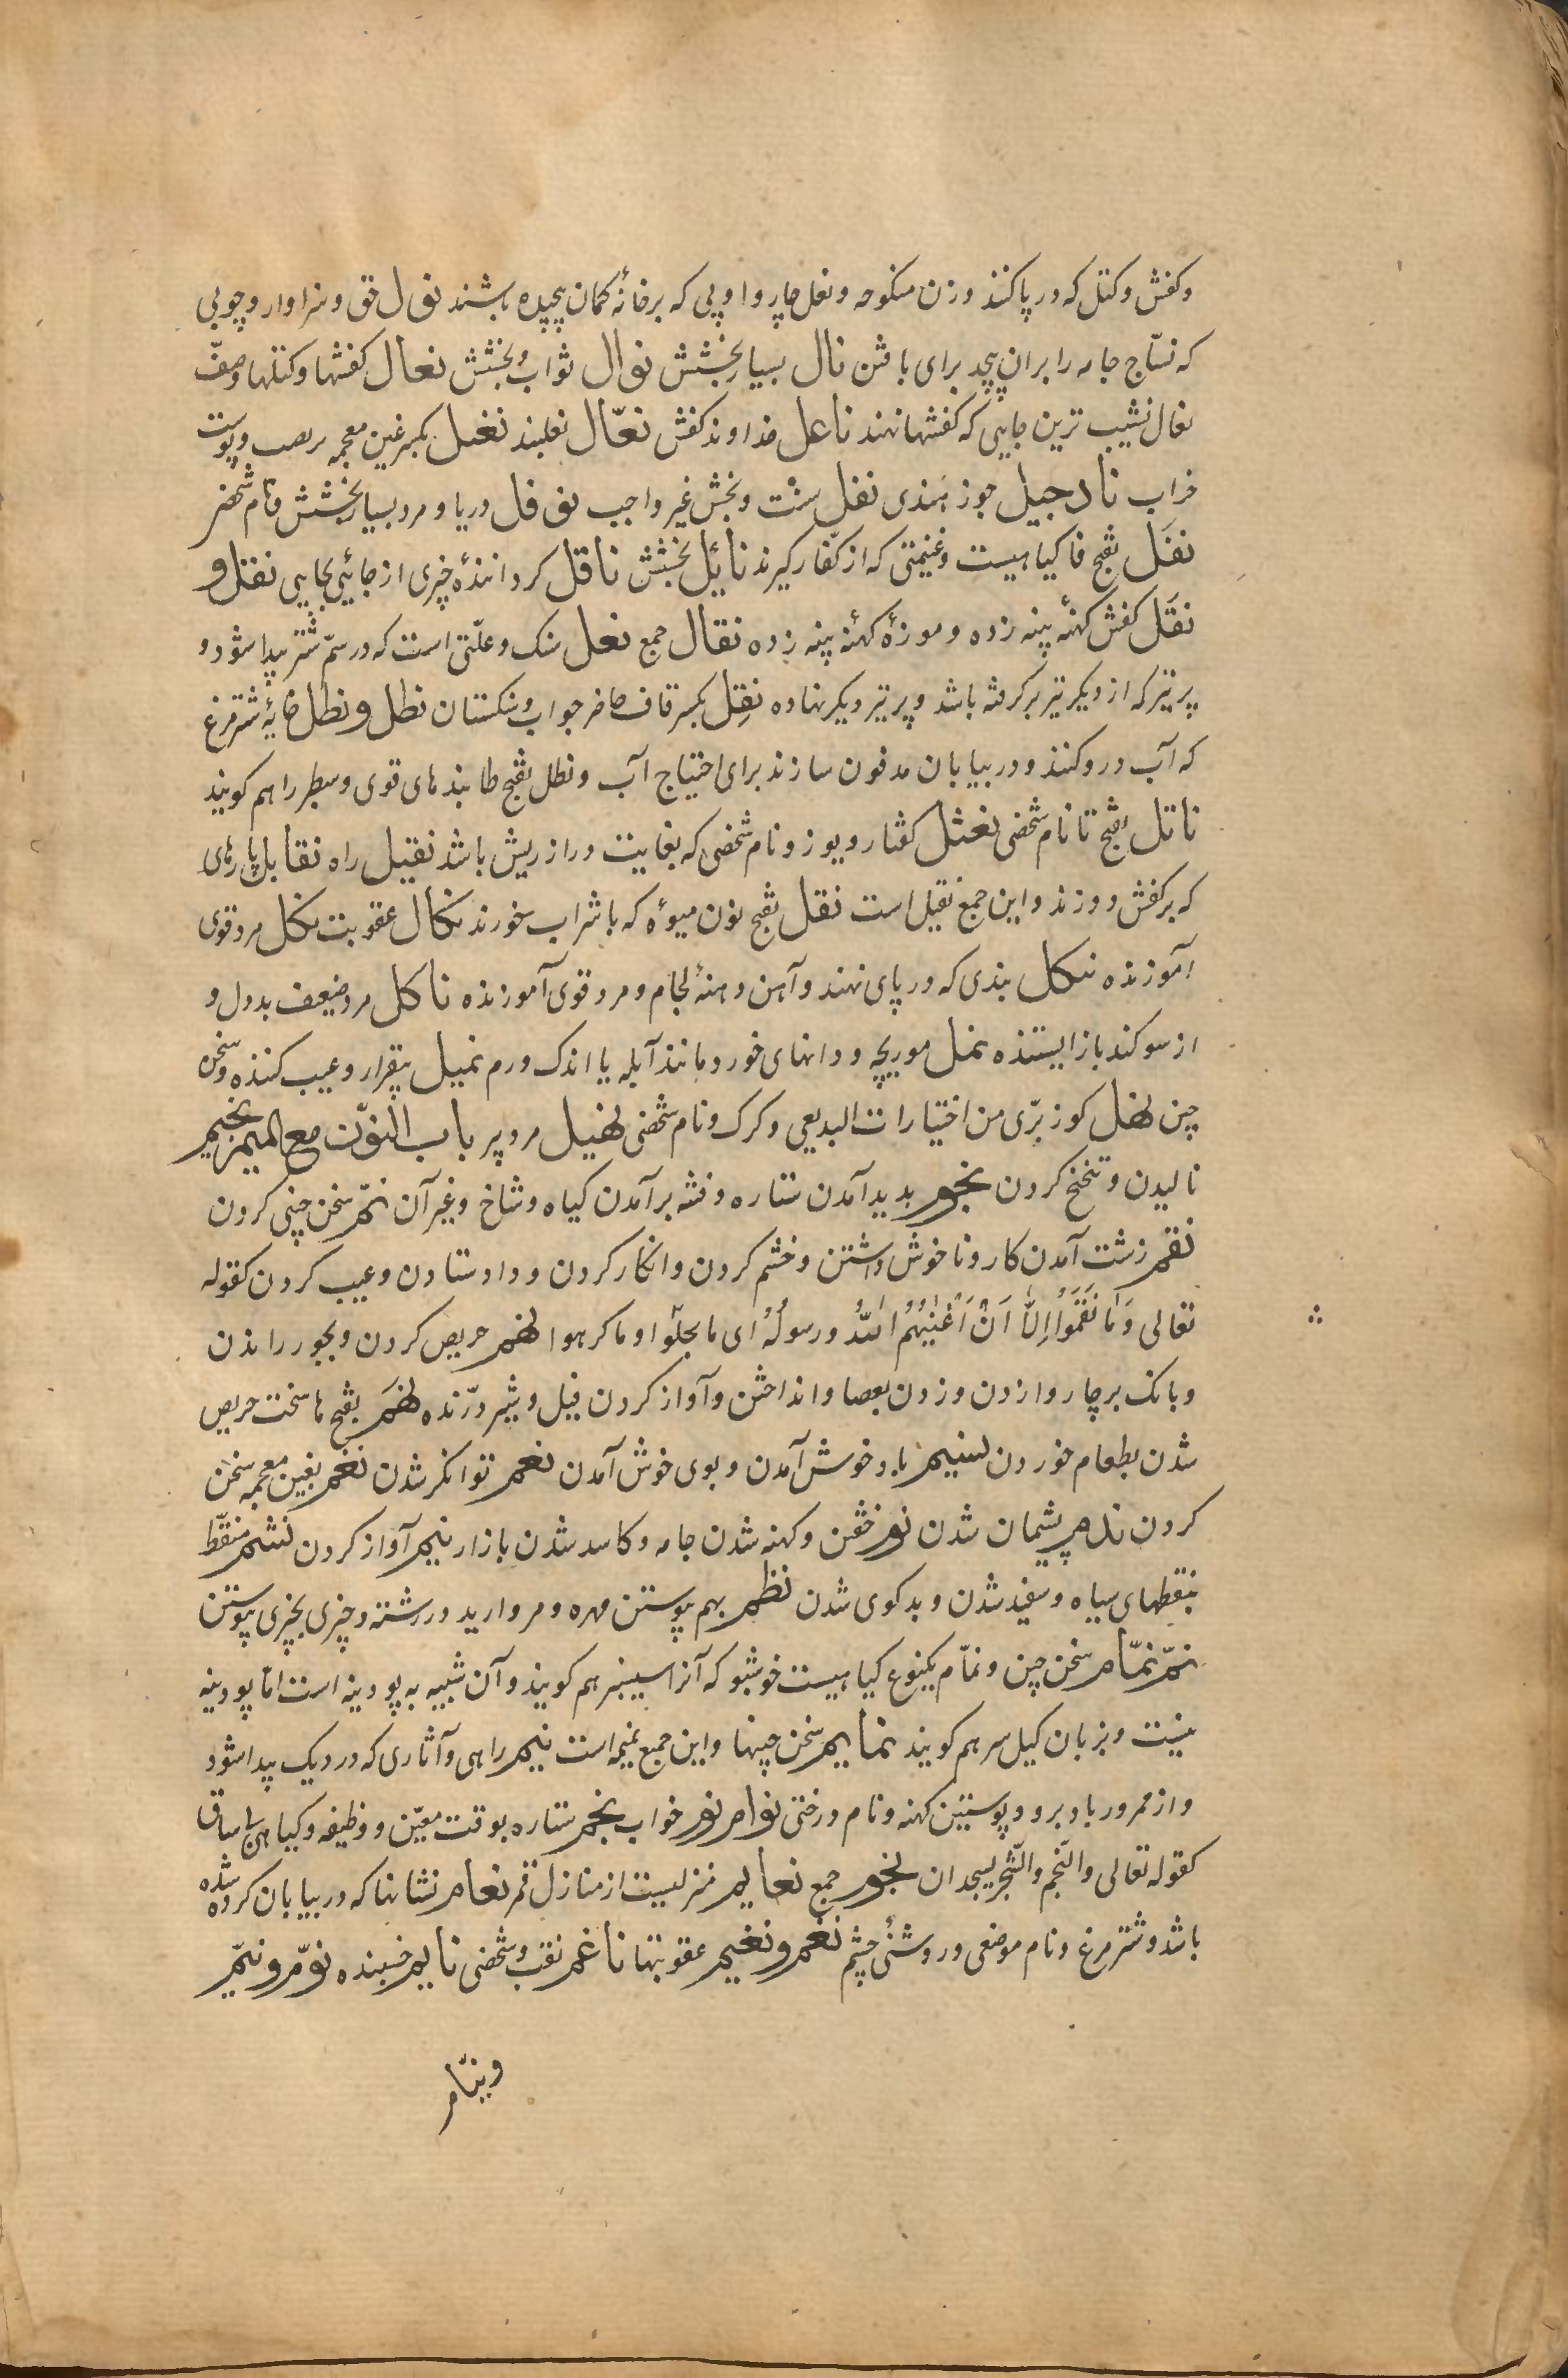 وکفش وکتل که در پا کنند وزن منکوحه ونعل چاروا وپی که بر خانهٔ کمان پیچیده باشند نول حق وسزاوار وچوبی
که نسّاج جامه را بران پیچد برای بافتن نال بسیار بخشش نوال ثواب وبخشش نعال کفشها وکتلها وصفّ
نعال نشیب ترین جایی که کفشها نهند ناعل خداوند کفش نعّال نعلبند نغل بکسر غین معجمه وپوست
خراب نارجیل جوز هندی نفل سنّت وبخش غیر واجب نوفل دریا ومرد بسیار بخشش ونام شخصی
نفَل بفتح فا کیاهیست وغنیمتی که از کفّار کیرند نائل بخشش ناقل کردانندهٔ چیزی از جائی بجایی نقل و
نقَل کفش کهنهٔ پینه زده وموزهٔ کهنهٔ پینه زده نقال جمع نعل سنک وعلّتی است که در سمّ شتر پیدا شود و
پر تیز که از دیکر تیر بر کرفته باشد وپر تیر دیکر نهاده نقِل بکسر قاف حاضر جواب وسنکستان نطل ونطل خایهٔ شترمرغ
که آب درو کنند ودر بیابان مدفون سازند برای احتیاج آب ونطل بفتح طا بندهای قوی وسطبر را هم کویند
ناتل بفتح تا نام شخصی نعثل کفتار ویوز ونام شخصی که بغایت دراز ریش باشد نقیل راه نقایل پارهای
که بر کفش دوزند واین جمع نقیل است نقل بفتح نون میوهٔ که با شراب خورند نکال عقوبت نکل مرد قوی
آموزنده نکل بندی که در پای نهند وآهن دهنهٔ لجام ومرد قوی آموزنده ناکل مرد ضعیف بددل و
از سوکند باز ایستنده نمل موریچه ودانهای خورد مانند آبله با اندک ورم نمیل بیقرار وعیب کننده وسخن
چین نهل کوز برّی من اختیارات البدیعی وکرک ونام شخصی نهیل مرد پیر باب النون مع المیم نحیم
نالیدن وتنحنح کردن نجوم پدید آمدن ستاره وفتنه برآمدن کیاه وشاخ وغیر آن نمّ سخن چینی کردن
نقم زشت آمدن کار وناخوش داشتن وخشم کردن وانکار کردن وداد ستادن وعیب کردن کقوله
تعالی وَمَا نَقَمُوا اِلَّا اَنْ اَغْنٰیهُمُ اللّٰهُ ورسولُهُ ای ما بخلوا وما کرهوا نهم حریص کردن وبجور راندن
وبانک بر چاروا زدن وزدن بعصا وانداختن وآواز کردن فیل وشیر درّنده نهَم بفتح ها سخت حریص
شدن بطعام خوردن نسیم باد خوش آمدن وبوی خوش آمدن نعم توانکر شدن نغم بغین معجمه سخن
کردن ندم پشیمان شدن نوم خفتن وکهنه شدن جامه وکاسد شدن بازار نیم آواز کردن نشم منقّط
بنقطهای سیاه وسفید شدن وبدکوی شدن نظم بهم پیوستن مهره ومروارید در رشته وچیزی بچیزی پیوستن
نمّ نمّام سخن چین ونمّام یکنوع کیاهیست خوشبو که آنرا سیسنبر هم کویند وآن شبیه به پودینه است امّا پودینه
نیست وبزبان کیل سر هم کویند نمایم سخن چینها واین جمع نمیمه است نیم راهی وآثاری که در ریک پیدا شود
واز مرور باد برو وپوستین کهنه ونام درختی نوام نوم خواب نجم ستاره بوقت معیّن ووظیفه وکیاهی بی ساق
کقوله تعالی والنّجم والشّجر یسجدان نجوم جمع نعایم منزلیست از منازل قمر نعام نشانها که در بیابان کرده شده
باشد وشترمرغ ونام موضعی وروشنئ چشم نغم ونغیم عقوبتها ناغم نقب وشخصی نایم خسبنده نوّم ونیّم
ونیّام